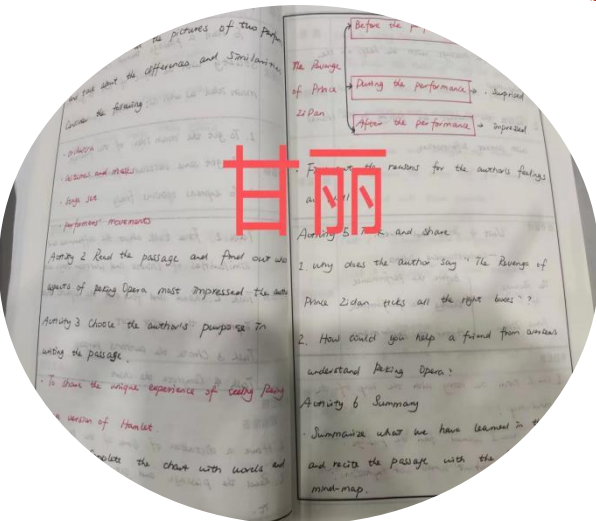 the pictures of two
talk about the differences and similarities
Consider the following.
· orchestra
· costumes and masks
· stage set
· performers' movements
Activity 2 Read the passage and find out
aspects of peking Opera most impressed the
Activity 3 Choose the author's purpose in
writing the passage.
· To share the unique experience of seeing Peking
version of Hamlet.
the chart with words and
Before the
The Revenge
of Prince
Zidan
During the performance → · Surprised
After the performance → Impressed
the reasons for the author's feelings
甘丽
Activity 5 and share
1. why does the author say "The Revenge of
Prince Zidan ticks all the right boxes"?
2. How could you help a friend from overseas
understand Peking Opera?
Activity 6 Summary
· Summarize what we have learned in
and recite the passage with the
mind-map.